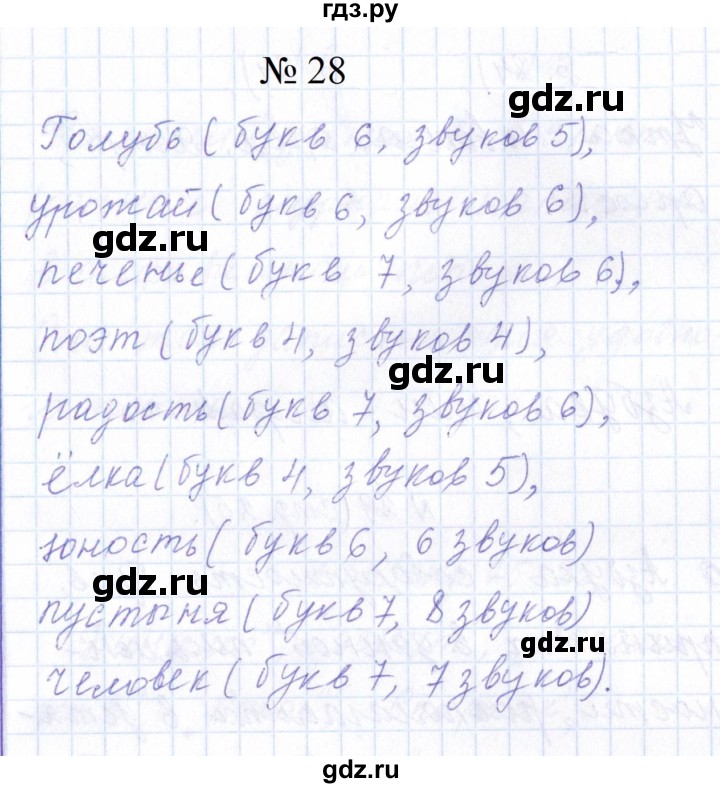 гдз.ру
№ 28
gdz.ru
Голубь (букв 6, звуков 5),
урожай (букв 6, звуков 6),
gdz.ru
печенье (букв 7, звуков 6),
поэт (букв 4, звуков 4),
gdz.ru
радость (букв 7, звуков 6),
ёлка (букв 4, звуков 5),
юность (букв 6, 6 звуков)
gdz.ru
пустыня (букв 7, 8 звуков)
человек (букв 7, 7 звуков).
gdz.ru
gdz.ru